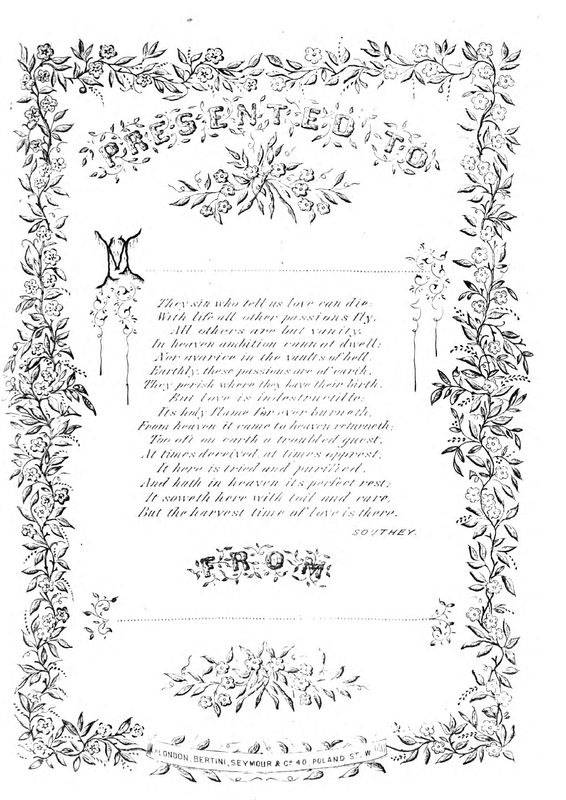 PRESENTED TO
M
They sin who tell us love can die:
With life all other passions fly,
All others are but vanity.
In heaven ambition cannot dwell;
Nor avarice in the vaults of hell.
Earthly, these passions are of earth,
They perish where they have their birth.
But love is indestructible;
Its holy flame for ever burneth,
From heaven it came to heaven returneth;
Too oft on earth a troubled guest,
At times deceived, at times opprest,
It here is tried and purified,
And hath in heaven its perfect rest;
It soweth here with toil and care,
But the harvest time of love is there.
SOUTHEY.
FROM
LONDON, BERTINI, SEYMOUR & Co 40, POLAND ST. W